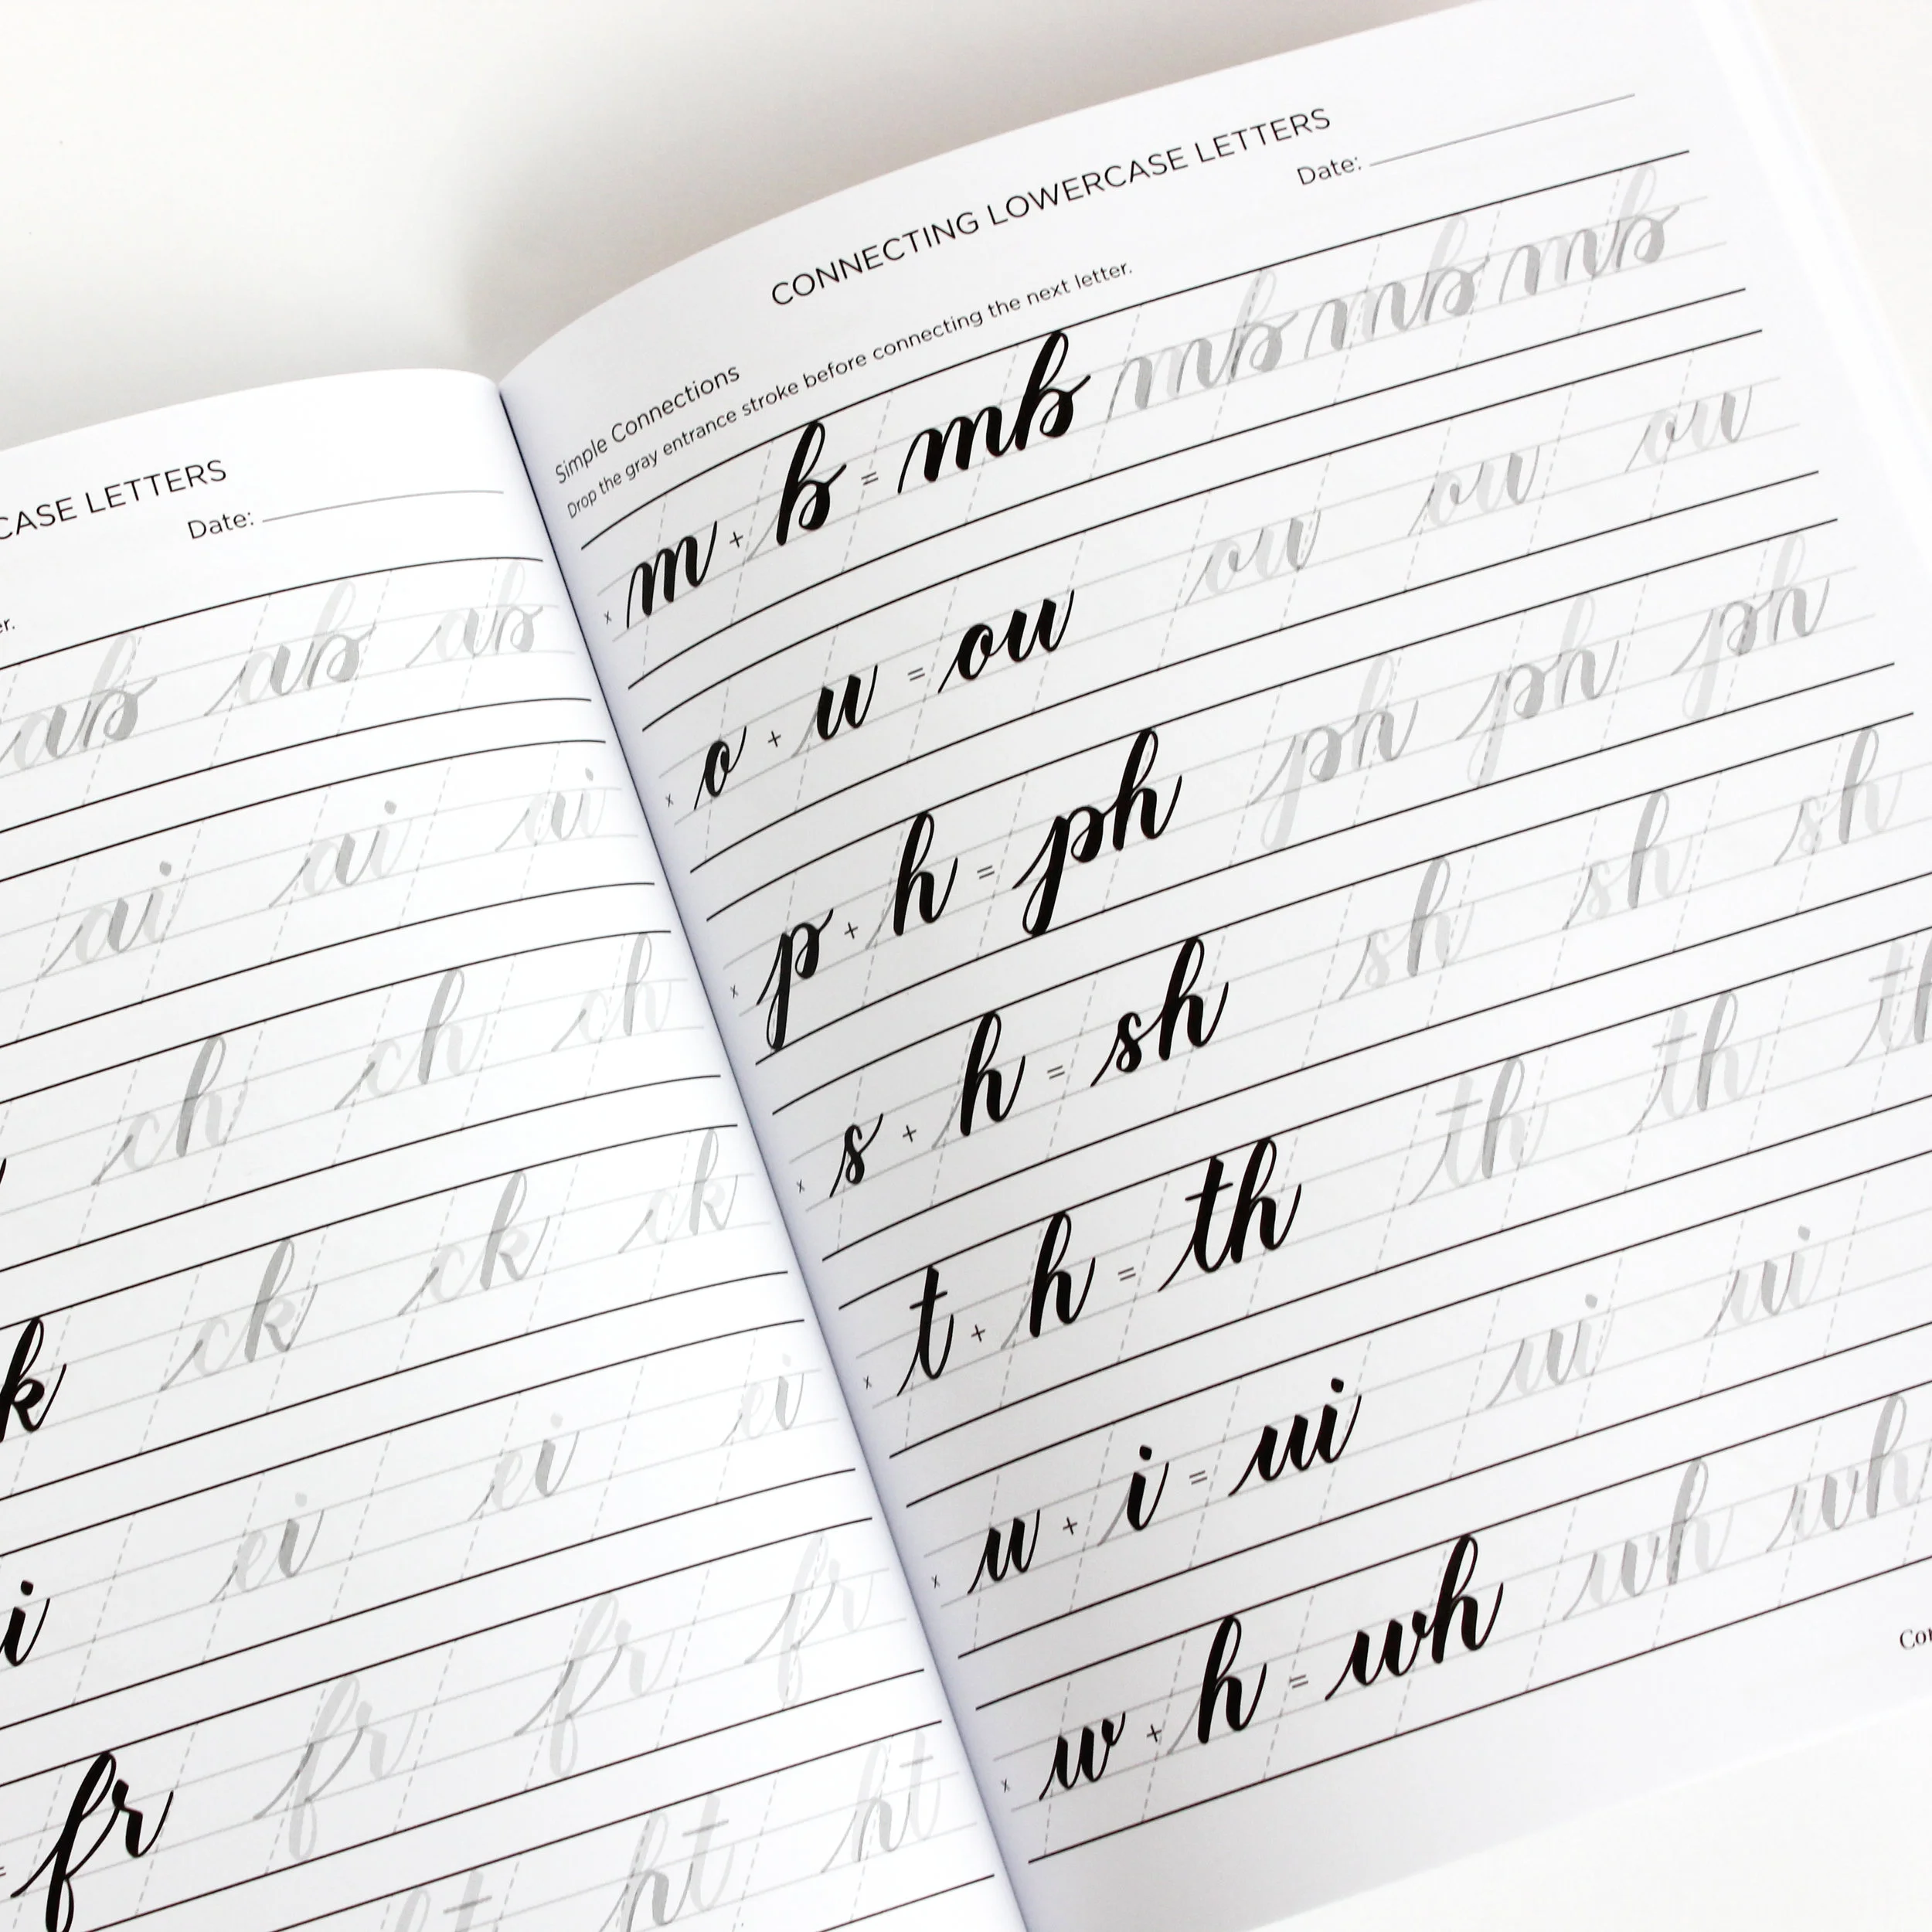 CASE LETTERS
Date:
er.
ab ab ab
ai ai ai
ch ch ch
k ck ck ck
i ei ei ei
= fr fr fr fr
ht ht ht
CONNECTING LOWERCASE LETTERS
Date:
Simple Connections
Drop the gray entrance stroke before connecting the next letter.
x m + b = mb mb mb mb
x o + u = ou ou ou ou
x p + h = ph ph ph ph
x s + h = sh sh sh sh
x t + h = th th th th
x u + i = ui ui ui
x w + h = wh wh wh